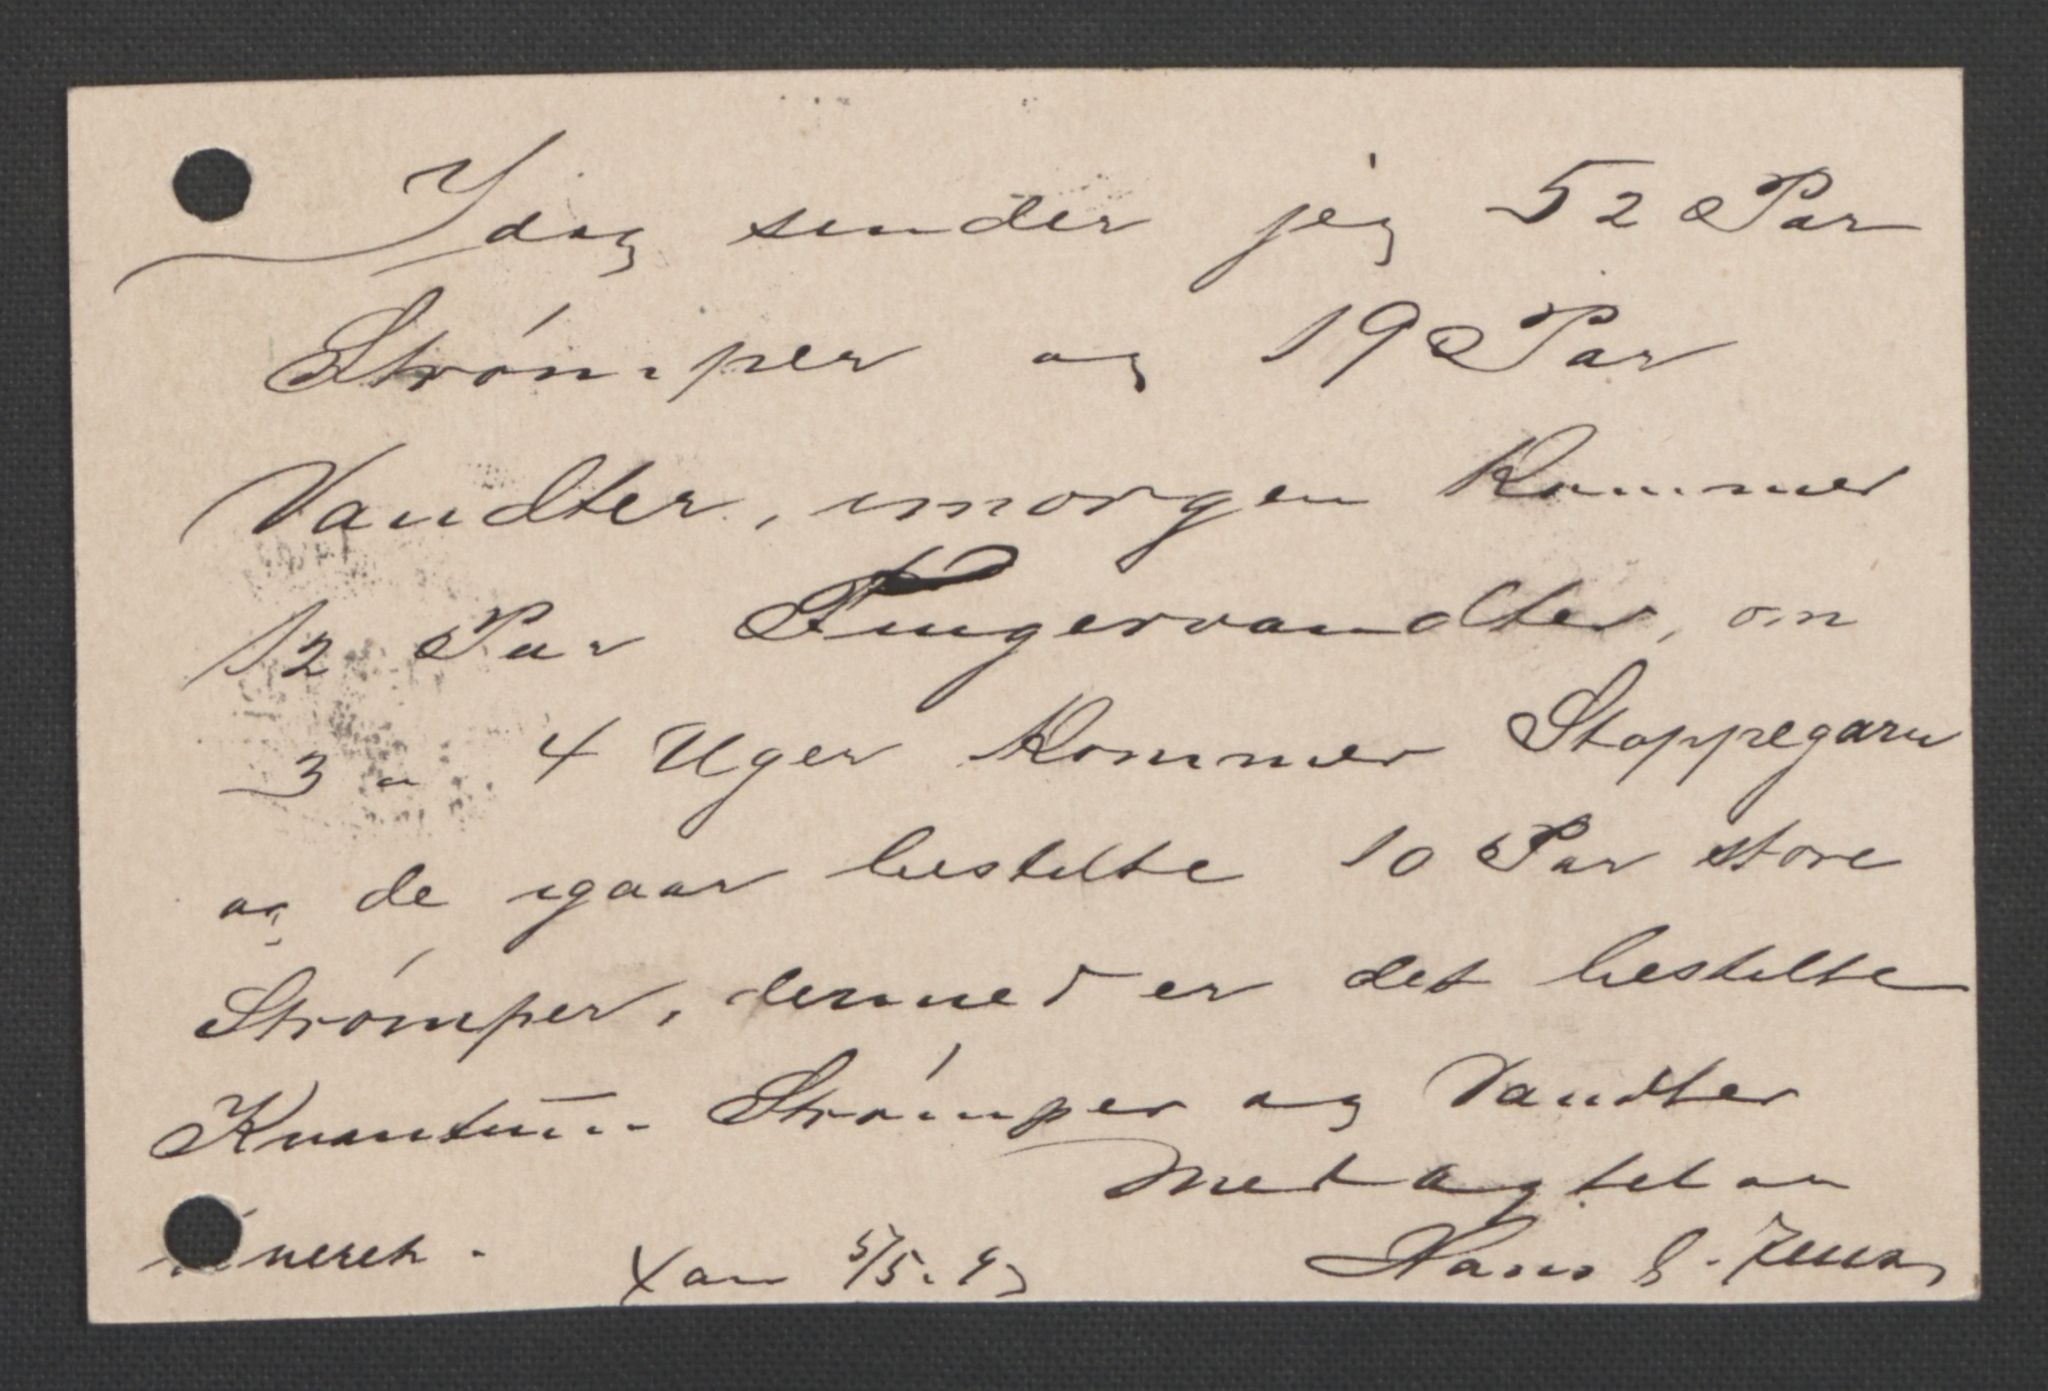 Idag sender jeg 52 Par
Strømper og 19 Par
Vandter, imorgen Kommer
12 Par Fingervandter, om
3 a 4 Uger Kommer Stoppegarn
og de igaar bestilte 10 Par store
Strømper, dermed er det bestilte
Kvantum Strømper og Vandter
Med agtelse
Hans E. Jensen